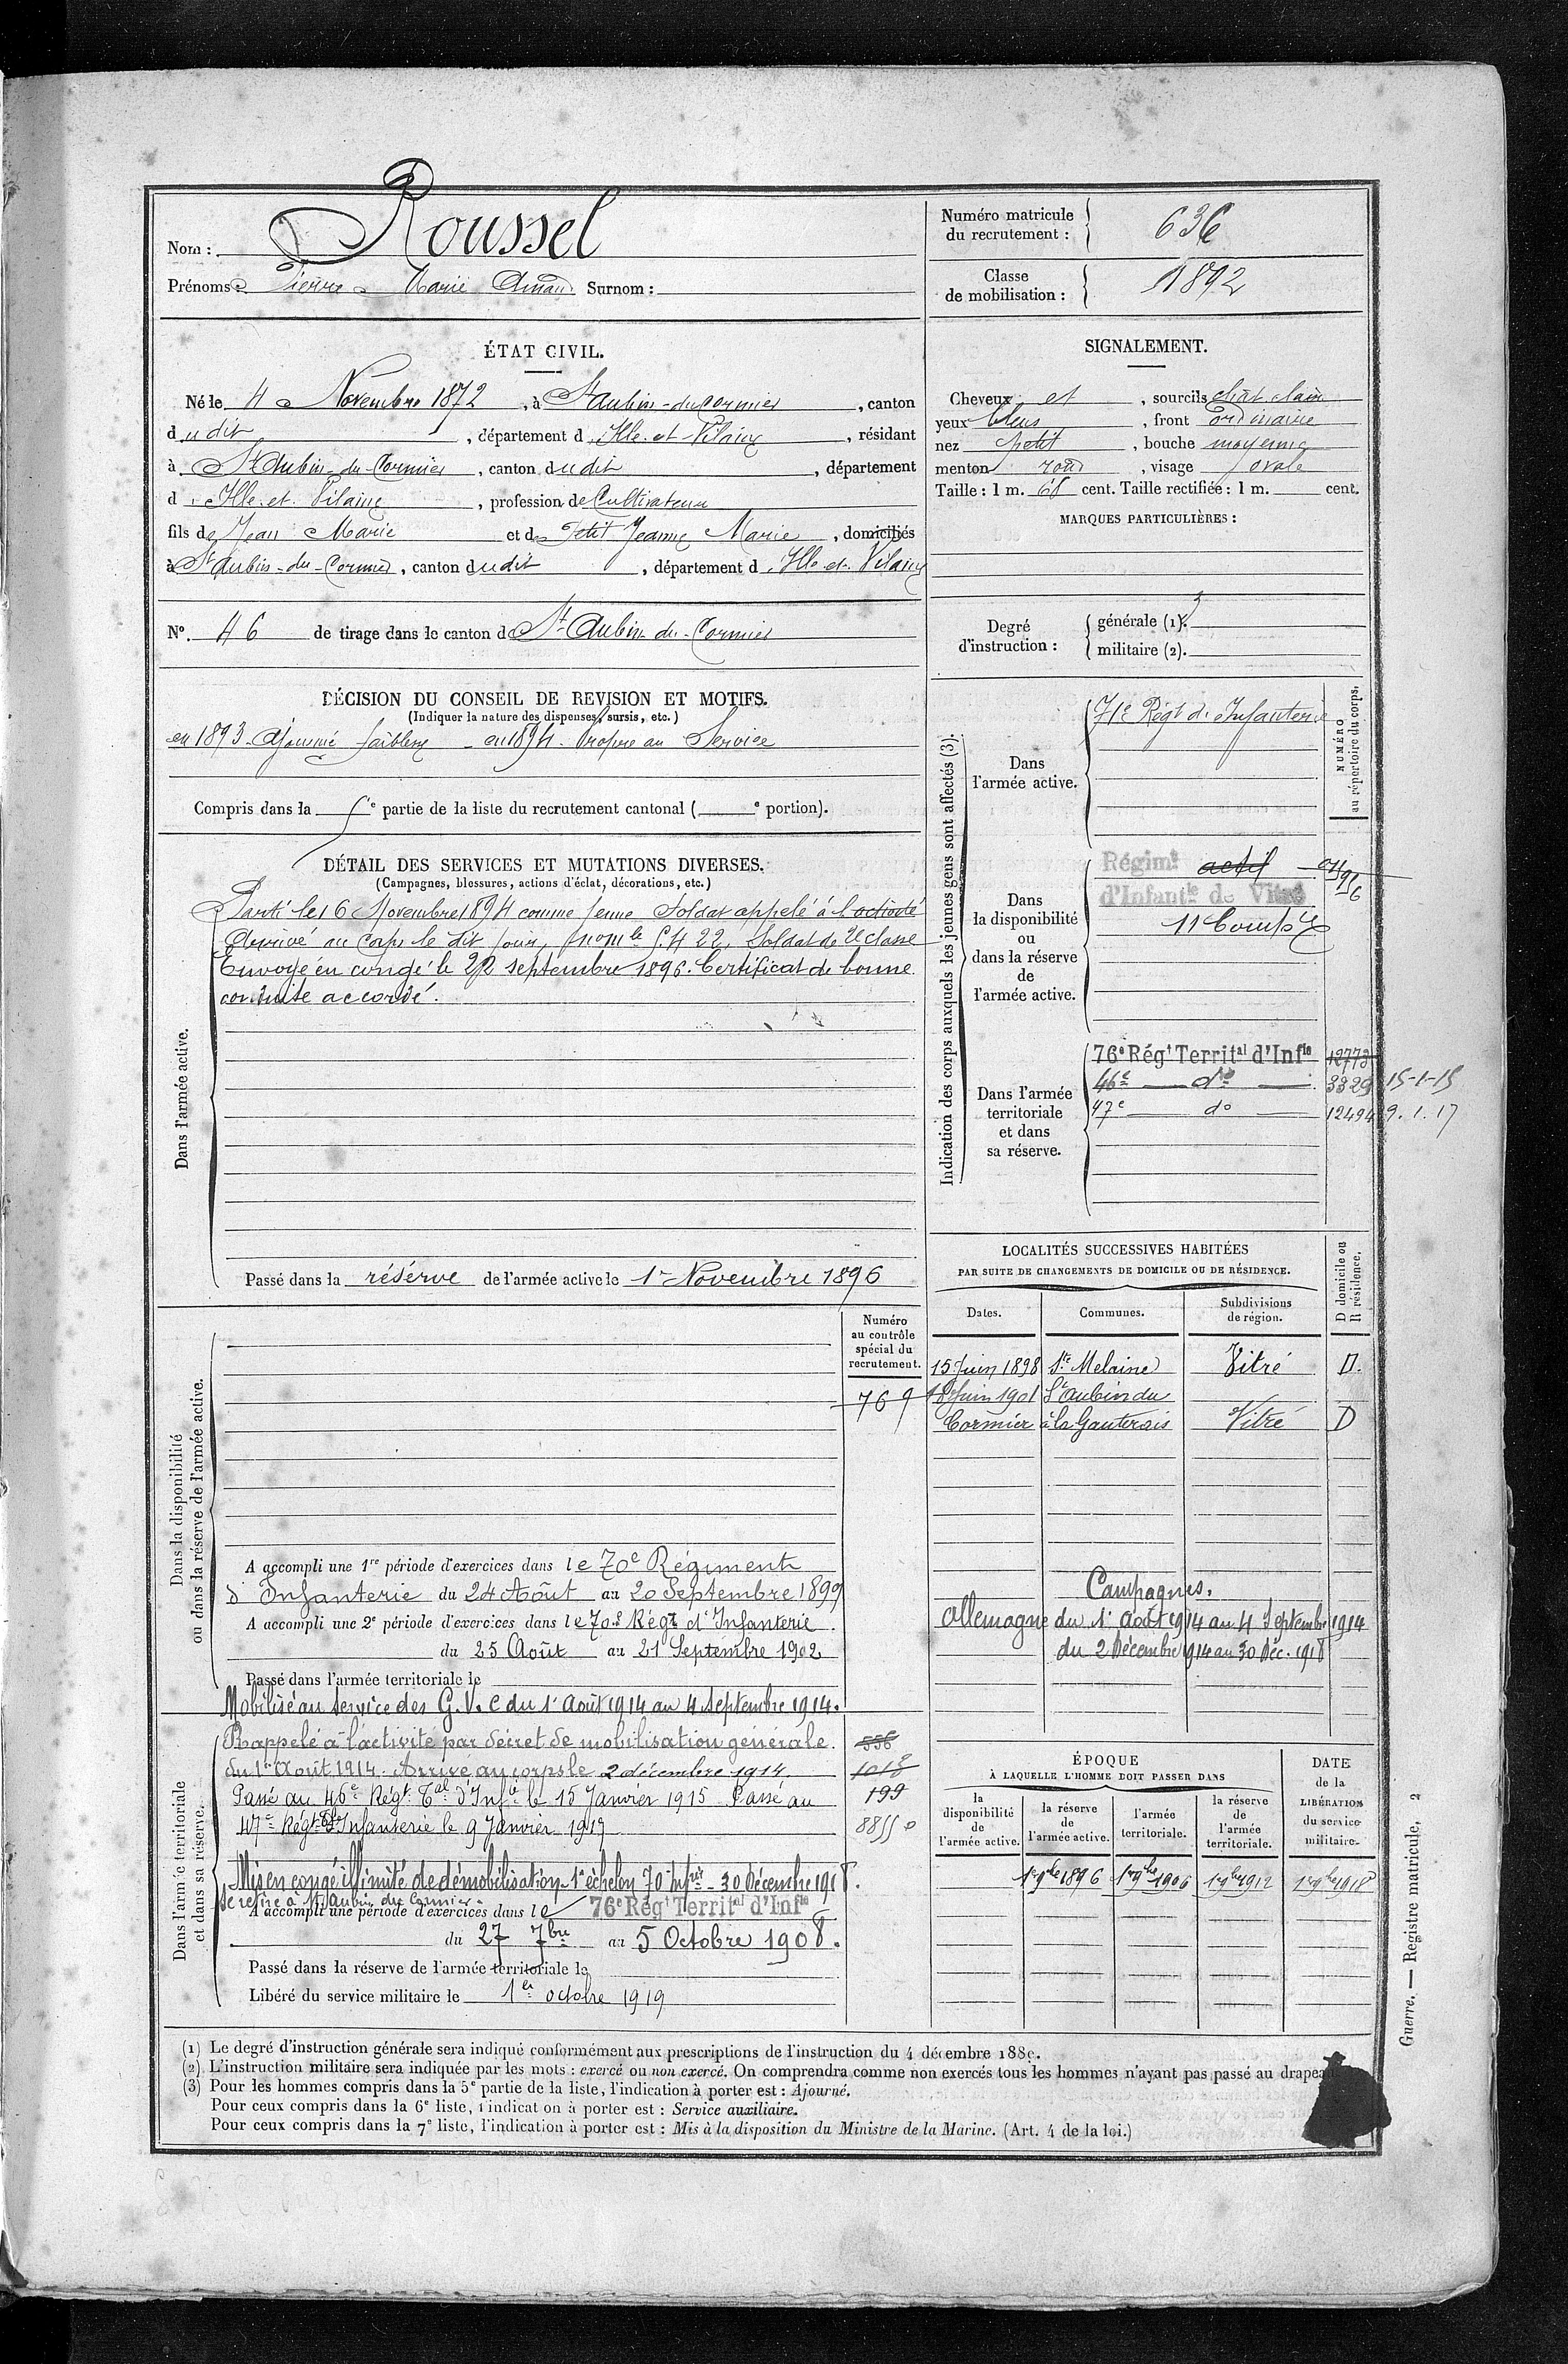 Nom : Roussel
Prénoms : Pierre Marie Amand Surnom :
Numéro matricule du recrutement : 636
Classe de mobilisation : 1892
ÉTAT CIVIL.
Né le 4 Novembre 1872, à St Aubin-du-Cormier, canton
dudit, département d'Ille-et-Vilaine, résidant
à St Aubin-du-Cormier, canton dudit, département
d'Ille-et-Vilaine, profession de Cultivateur
fils de Jean Marie et de Petit Jeanne Marie, domiciliés
à St Aubin-du-Cormier, canton dudit, département d'Ille-et-Vilaine
N° 46 de tirage dans le canton de St Aubin-du-Cormier
SIGNALEMENT.
Cheveux et, sourcils chât clair
yeux bleus, front ordinaire
nez petit, bouche moyenne
menton rond, visage ovale
Taille : 1 m. 68 cent. Taille rectifiée : 1 m. cent.
MARQUES PARTICULIÈRES :
Degré d'instruction : générale (1). 3
militaire (2).
DÉCISION DU CONSEIL DE REVISION ET MOTIFS.
(Indiquer la nature des dispenses, sursis, etc.)
en 1893. Ajourné faiblesse - en 1894. Propre au Service
Compris dans la partie de la liste du recrutement cantonal ( e portion).
DÉTAIL DES SERVICES ET MUTATIONS DIVERSES.
(Campagnes, blessures, actions d'éclat, décorations, etc.)
Dans l'armée active.
Parti le 16 Novembre 1894 comme jeune Soldat appelé à l'activité
Arrivé au corps le dit jour, nom le 5422, Soldat de 2e classe
Envoyé en congé le 22 septembre 1896. Certificat de bonne
conduite accordé.
Passé dans la réserve de l'armée active le 1er Novembre 1896
Indication des corps auxquels les jeunes gens sont affectés (3).
NUMÉRO au répertoire du corps.
Dans l'armée active.
71e Régt d'Infanterie
Dans la disponibilité ou dans la réserve de l'armée active.
Régimt actif
d'Infantle de Vitré
11 Comp
Dans l'armée territoriale et dans sa réserve.
76e Régt Territal d'Infie 12773
46e do 3329 15-1-15
47e do 12494 9.1.17
LOCALITÉS SUCCESSIVES HABITÉES
PAR SUITE DE CHANGEMENTS DE DOMICILE OU DE RÉSIDENCE.
Dates. Communes. Subdivisions de région. D domicile ou R résidence.
15 Juin 1898 Ste Melaine Vitré D.
18 Juin 1901 St Aubin du
Cormier à la Gauterais Vitré D
Campagnes.
Allemagne du 1r août 1914 au 4 Septembre 1914
du 2 Décembre 1914 au 30 Déc. 1918
Dans la disponibilité ou dans la réserve de l'armée active.
Numéro au contrôle spécial du recrutement.
769
A accompli une 1re période d'exercices dans le 70e Régiment
d'Infanterie du 24 Août au 20 Septembre 1899
A accompli une 2e période d'exercices dans le 70e Régt d'Infanterie
du 25 Août au 21 Septembre 1902
Passé dans l'armée territoriale le
Mobilisé au service des G.V.C du 1r août 1914 au 4 septembre 1914.
Dans l'armée territoriale et dans sa réserve.
Rappelé à l'activité par décret de mobilisation générale 556
du 1er Août 1914. Arrivé au corps le 2 décembre 1914. 1018
Passé au 46e Régt Tal d'Infie le 15 Janvier 1915 Passé au 199
47e Régt Tal d'Infanterie le 9 Janvier 1917 8855
Mis en congé illimité de démobilisation 1r échelon 70e Infrie - 30 Décembre 1918.
se retire à St Aubin du Cormier.
A accompli une période d'exercices dans le 76e Régt Territal d'Infie
du 27 7bre au 5 Octobre 1908.
Passé dans la réserve de l'armée territoriale le
Libéré du service militaire le 1er octobre 1919
ÉPOQUE
À LAQUELLE L'HOMME DOIT PASSER DANS
la disponibilité de l'armée active. la réserve de l'armée active. l'armée territoriale. la réserve de l'armée territoriale.
DATE de la LIBÉRATION du service militaire.
1er 9bre 1896 1er 9bre 1906 1er 9bre 1912 1er 9bre 1918
(1) Le degré d'instruction générale sera indiqué conformément aux prescriptions de l'instruction du 4 décembre 1889.
(2) L'instruction militaire sera indiquée par les mots : exercé ou non exercé. On comprendra comme non exercés tous les hommes n'ayant pas passé au drapeau
(3) Pour les hommes compris dans la 5e partie de la liste, l'indication à porter est : Ajourné.
Pour ceux compris dans la 6e liste, l'indication à porter est : Service auxiliaire.
Pour ceux compris dans la 7e liste, l'indication à porter est : Mis à la disposition du Ministre de la Marine. (Art. 4 de la loi.)
Guerre. — Registre matricule, 2